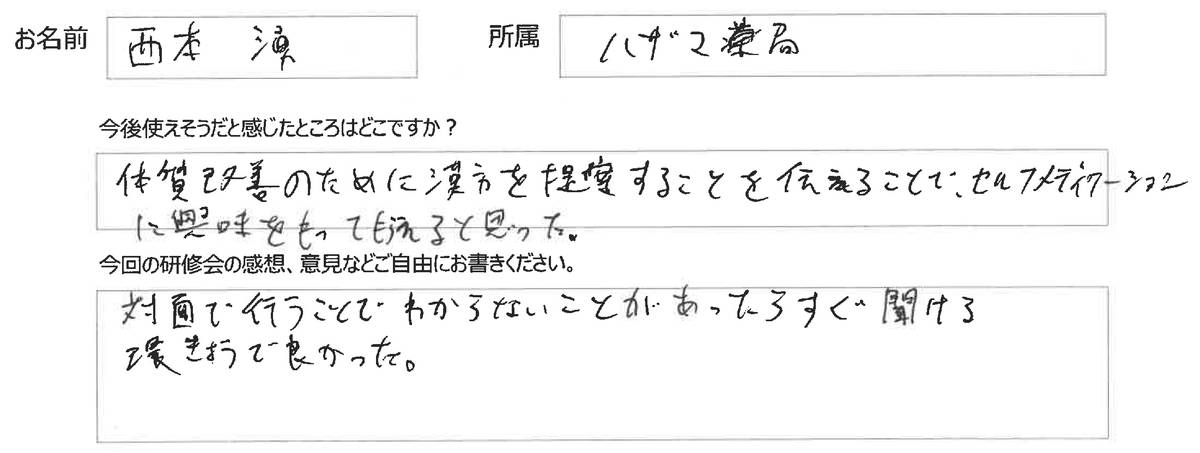 お名前 西本 湧 所属 ハザマ薬局
今後使えそうだと感じたところはどこですか？
体質改善のために漢方を提案することを伝えることで、セルフメディケーション
に興味をもってもらえると思った。
今回の研修会の感想、意見などご自由にお書きください。
対面で行うことでわからないことがあったらすぐ聞ける
環きょうで良かった。